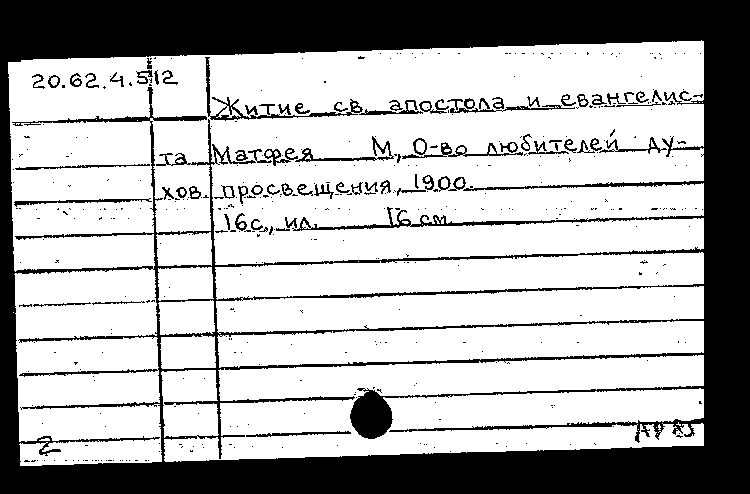 20.62.4.512
Житие св. апостола и евангелис-
та Матфея М, О-во любителей ду-
хов. просвещения, 1900.
16с., ил. 16 см
2